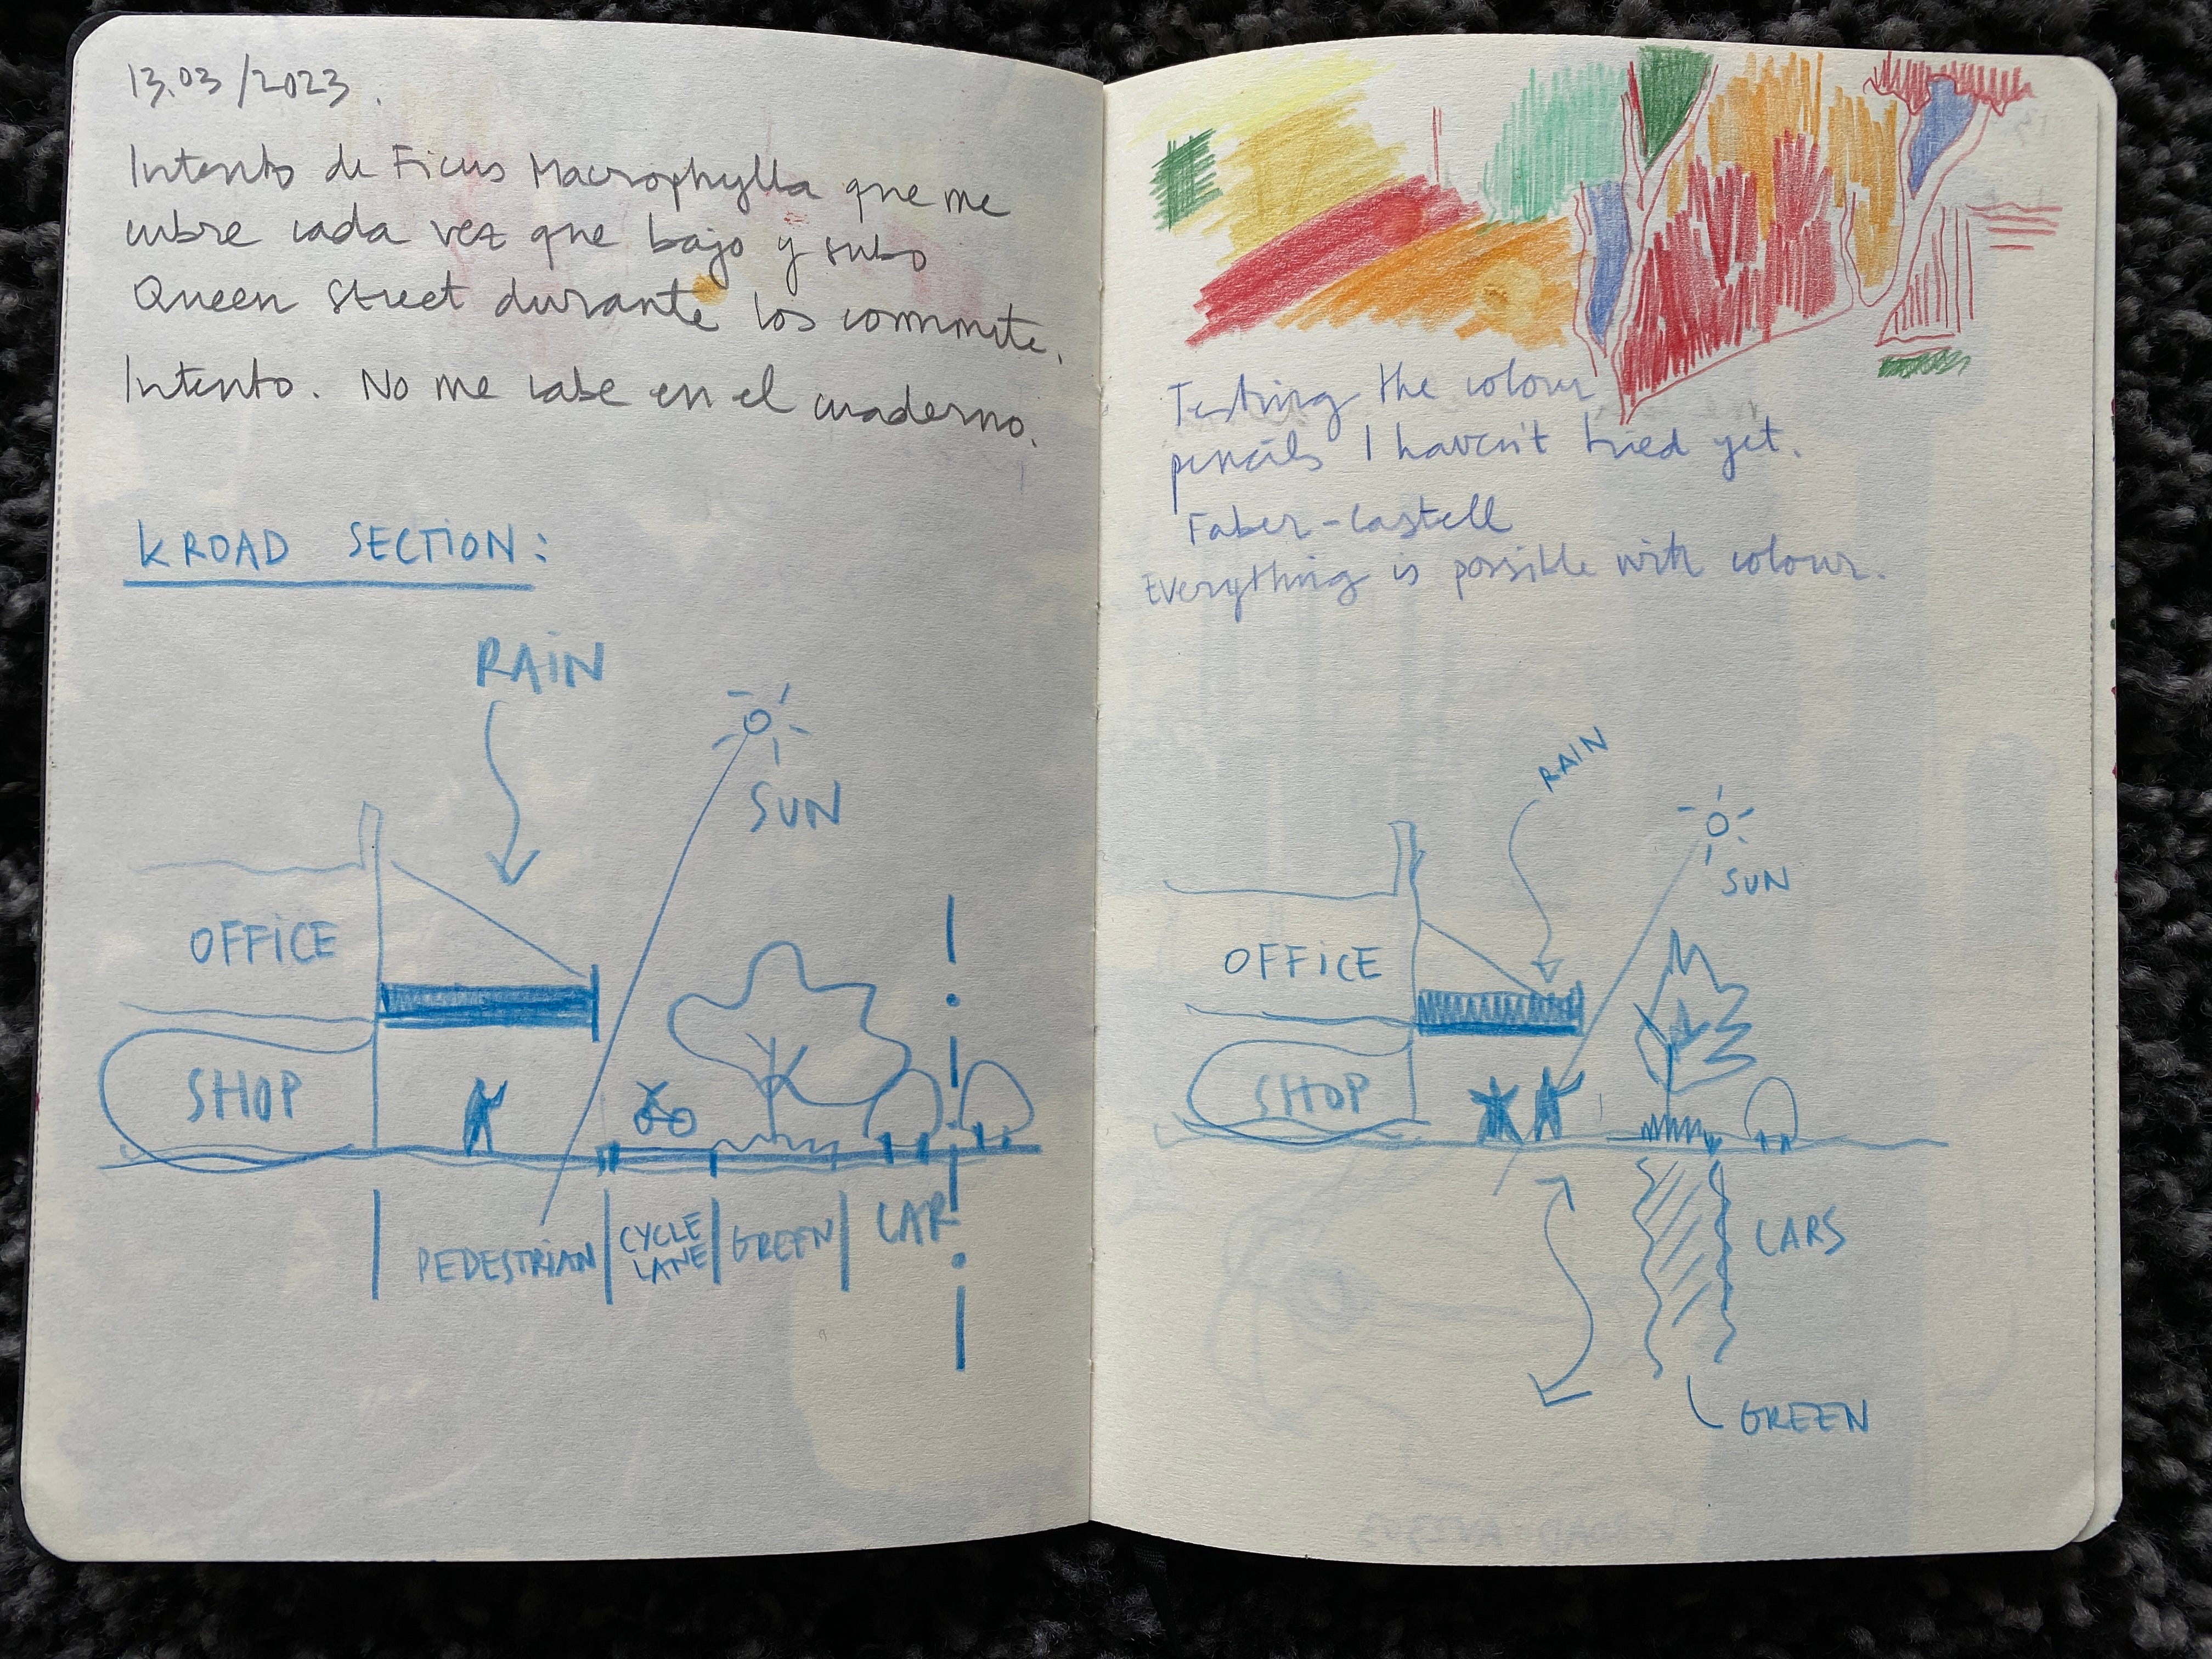 13.03/2023.
Intento de Ficus Macrophylla que me
cubre cada vez que bajo y subo
Queen Street durante los commute.
Intento. No me cabe en el cuaderno.
K ROAD SECTION:
RAIN
SUN
OFFICE
SHOP
PEDESTRIAN
CYCLE
LANE
GREEN
CAR
Testing the colour
pencils I haven't tried yet.
Faber-Castell
Everything is possible with colour.
RAIN
SUN
OFFICE
SHOP
CARS
GREEN